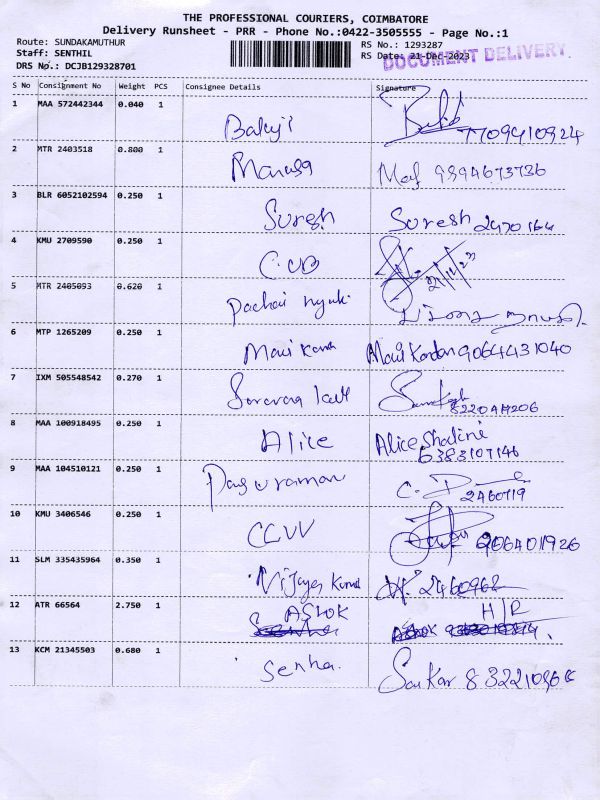 THE PROFESSIONAL COURIERS, COIMBATORE
Delivery Runsheet - PRR - Phone No.:0422-3505555 - Page No.:1
Route: SUNDAKAMUTHUR
Staff: SENTHIL
DRS No.: DCJB129328701
RS No.: 1293287
RS Date: 21-Dec-2023
DOCUMENT DELIVERY
S No Consignment No Weight PCS Consignee Details Signature
1 MAA 572442344 0.040 1 Balaji
2 MTR 2403518 0.800 1 9894673736
3 BLR 6052102594 0.250 1 Suresh Suresh 2470164
4 KMU 2709590 0.250 1 CUB 21/12/23
5 MTR 2405093 0.620 1 Pachai
6 MTP 1265209 0.250 1 Mani Kandan 9064431040
7 IXM 505548542 0.270 1
8 MAA 100918495 0.250 1 Alice Alice Shalini
6383107146
9 MAA 104510121 0.250 1 2460719
10 KMU 3406546 0.250 1
11 SLM 335435964 0.350 1 Vijaya Kumar 2460968
12 ATR 66564 2.750 1 ASHOK H/R
13 KCM 21345503 0.680 1 Senha.